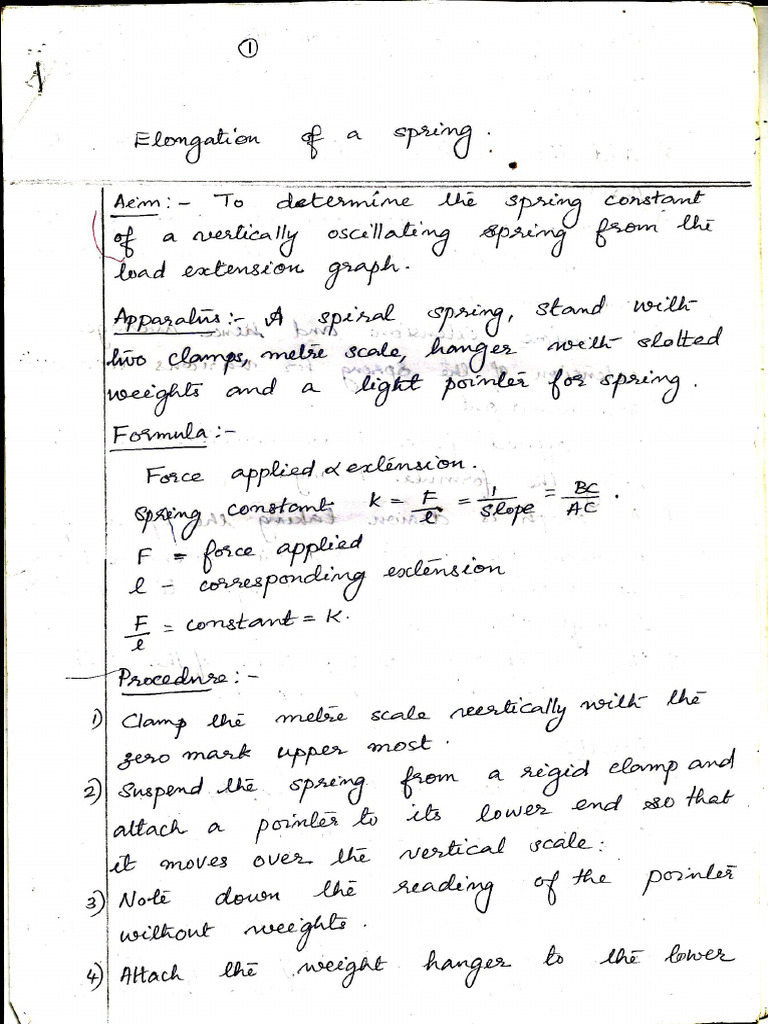 ①
Elongation of a spring.
Aim :- To determine the spring constant
of a vertically oscillating spring from the
load extension graph.
Apparatus :- A spiral spring, stand with
two clamps, metre scale, hanger with slotted
weights and a light pointer for spring.
Formula :-
Force applied ∝ extension.
spring constant K = F/l = 1/Slope = BC/AC .
F = force applied
l - corresponding extension
F/l = constant = K.
Procedure :-
1) Clamp the metre scale vertically with the
zero mark upper most.
2) Suspend the spring from a rigid clamp and
attach a pointer to its lower end so that
it moves over the vertical scale:
3) Note down the reading of the pointer
without weights.
4) Attach the weight hanger to the lower